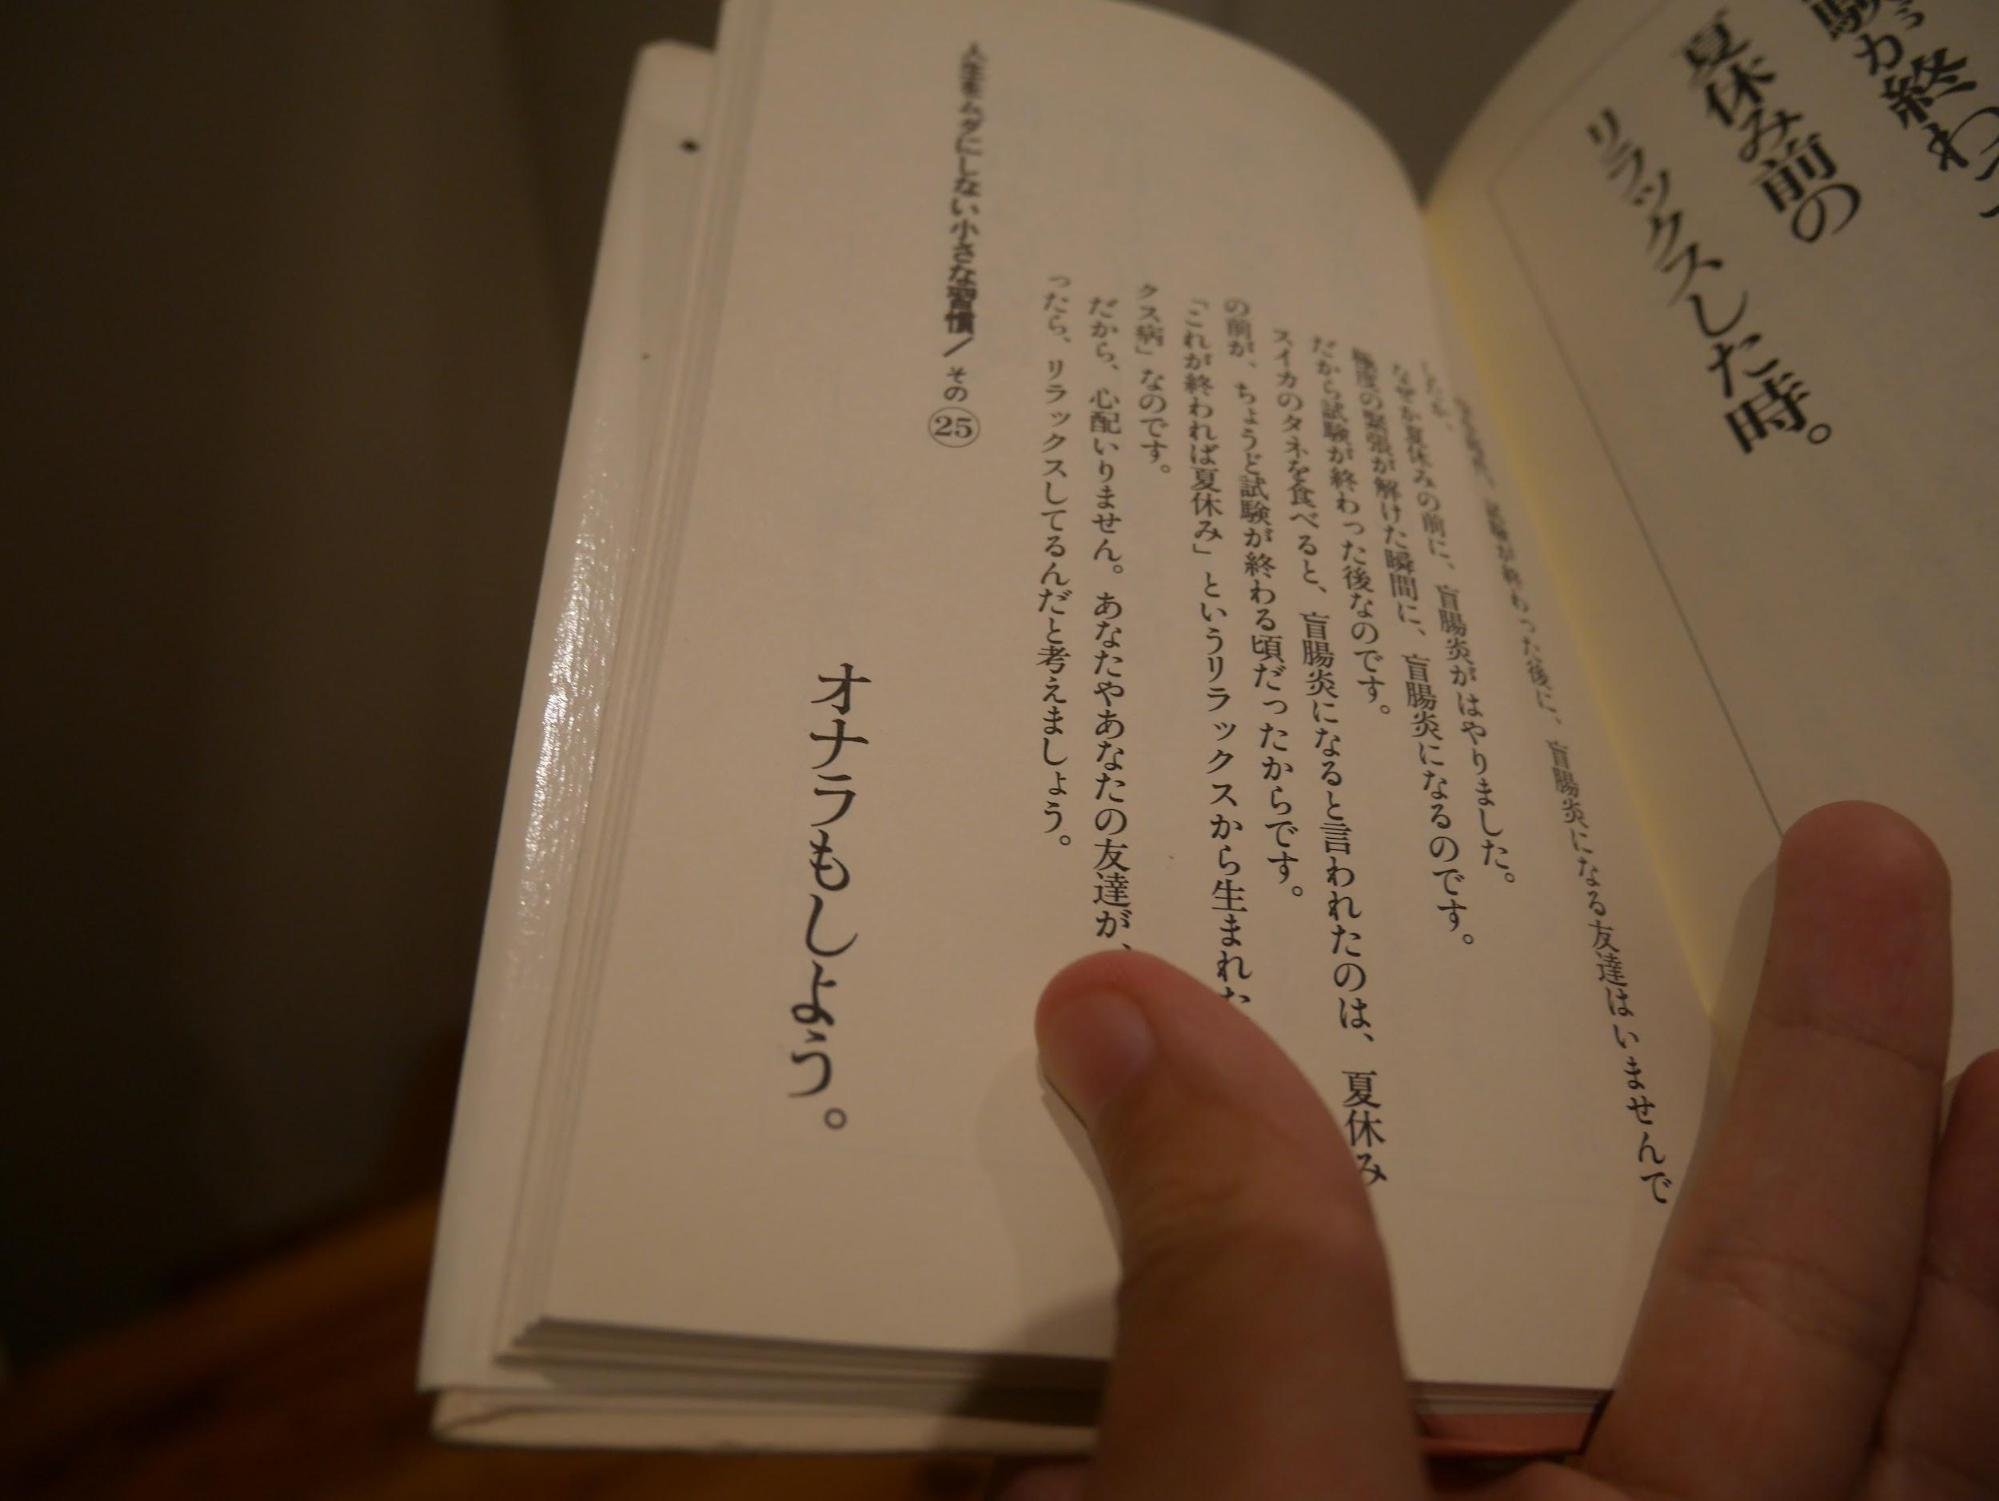 験が終わって
夏休み前の
リラックスした時。
試験が終わった後に、盲腸炎になる友達はいませんで
したか。
なぜか夏休みの前に、盲腸炎がはやりました。
極度の緊張が解けた瞬間に、盲腸炎になるのです。
だから試験が終わった後なのです。
スイカのタネを食べると、盲腸炎になると言われたのは、夏休み
の前が、ちょうど試験が終わる頃だったからです。
「これが終われば夏休み」というリラックスから生まれた
クス病」なのです。
だから、心配いりません。あなたやあなたの友達が、
ったら、リラックスしてるんだと考えましょう。
人生をムダにしない小さな習慣/その㉕
オナラもしよう。